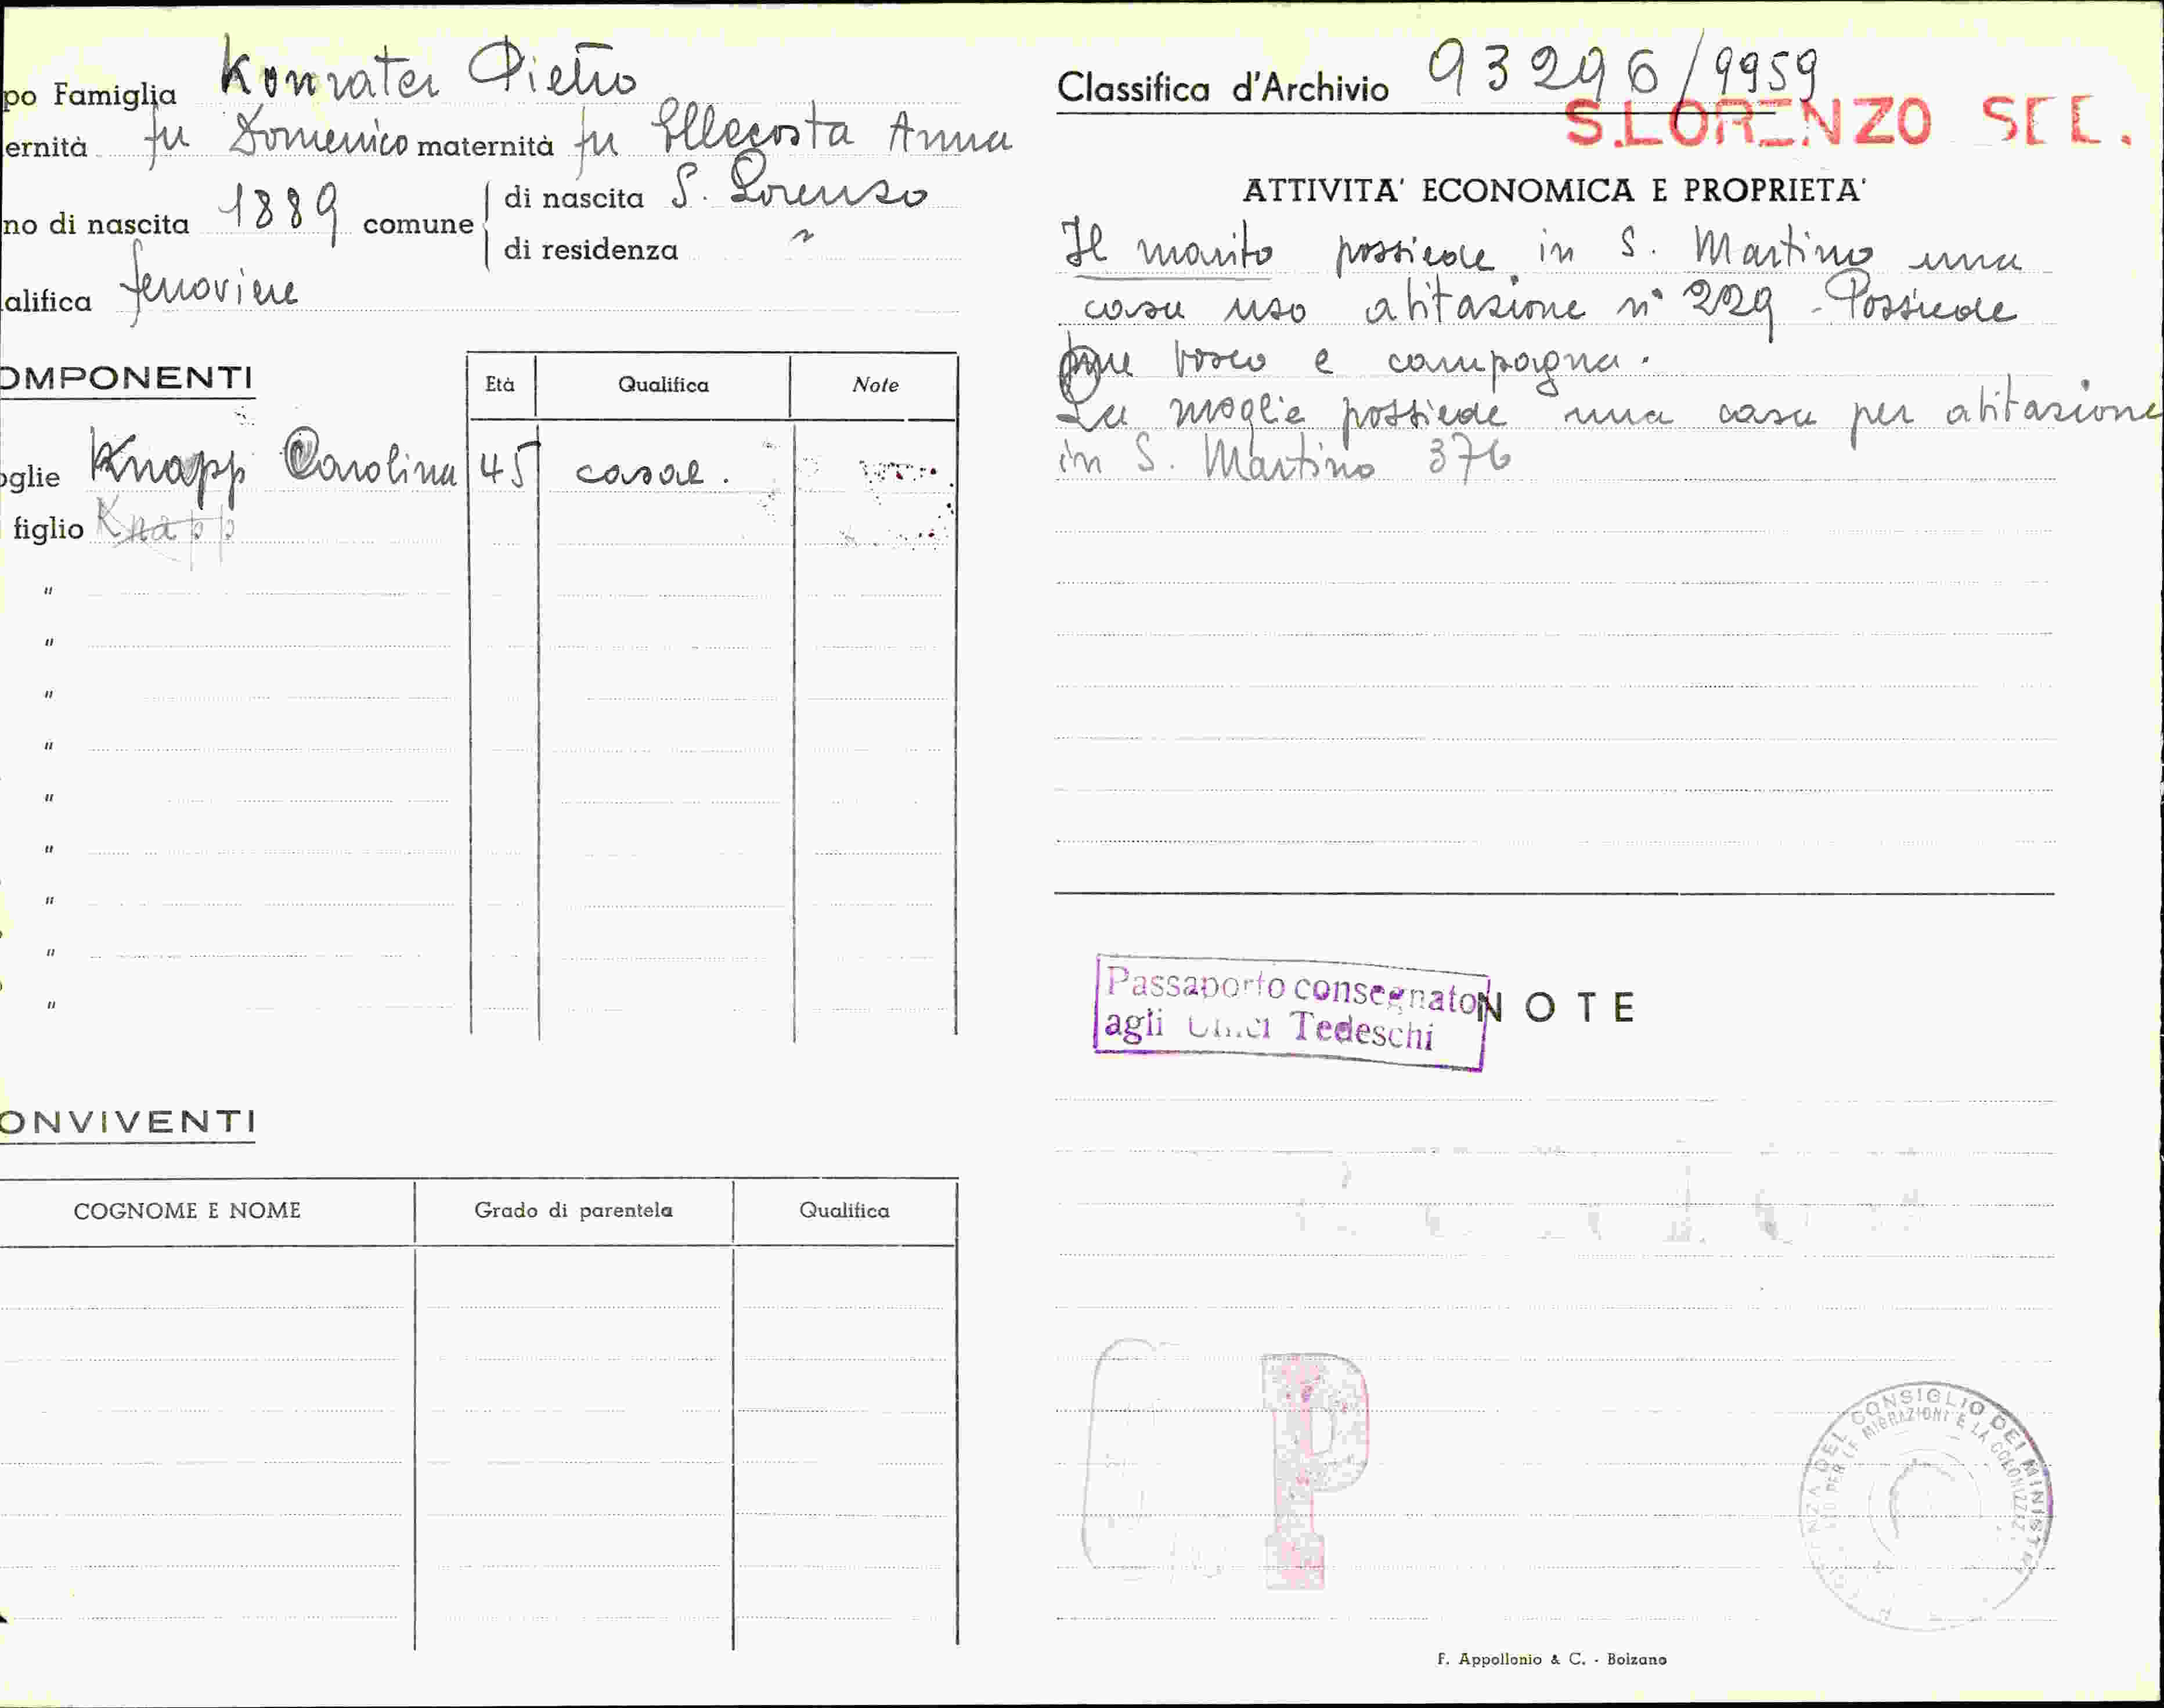 po Famiglia Konrater Pietro
ernità fu Domenico maternità fu Ellecosta Anna
no di nascita 1889 comune di nascita S. Lorenzo
di residenza "
alifica ferroviere
OMPONENTI
Età Qualifica Note
oglie Knapp Carolina 45 casal.
figlio Knapp
"
"
"
"
"
"
"
"
"
ONVIVENTI
COGNOME E NOME Grado di parentela Qualifica
Classifica d'Archivio 93296/9959
S.LORENZO SEE.
ATTIVITA' ECONOMICA E PROPRIETA'
Il marito possiede in S. Martino una
casa uso abitazione n° 229 - Possiede
pure bosco e campagna.
La moglie possiede una casa per abitazione
in S. Martino 376
Passaporto consegnato
agli Tedeschi
NOTE
P
CONSIGLIO DEI MINIST
PER LE MIGRAZIONI E LA COLONIZZAZ
F. Appollonio & C. - Bolzano